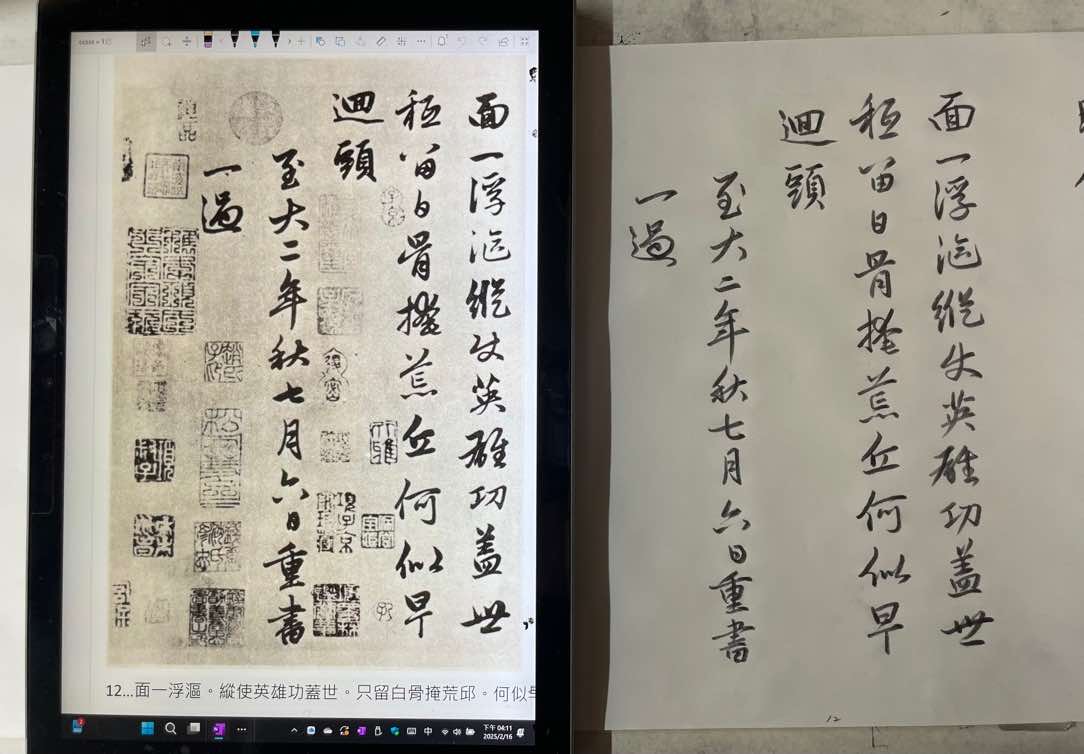 面一浮漚縱使英雄功盖世
秪留白骨掩荒丘何似早
迴頭
至大二年秋七月六日重書
一過
12...面一浮漚。縱使英雄功蓋世。只留白骨掩荒邱。何似
中
下午 04:11
2025/2/16
面一浮漚縱使英雄功盖世
秪留白骨掩荒丘何似早
迴頭
至大二年秋七月六日重書
一過
12